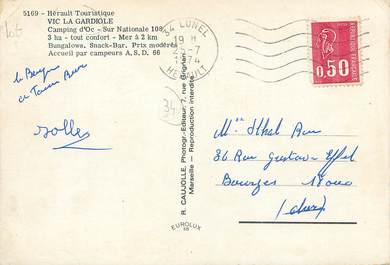 5169 - Hérault Touristique
VIC LA GARDIOLE
Camping d'Oc - Sur Nationale 108
3 ha - tout confort - Mer à 2 km
Bungalows, Snack-Bar. Prix modérés
Accueil par campeurs A. S. D. 66
34 LUNEL
19 H
25-7
1974
HERAULT
POSTES
REPUBLIQUE FRANÇAISE
0,50
34
R. CAUJOLLE, Photogr.-Editeur, 7, rue Grignan
Marseille - Reproduction interdite
36 Rue Gustave Eiffel
Bourges 18000
(cher)
EUROLUX